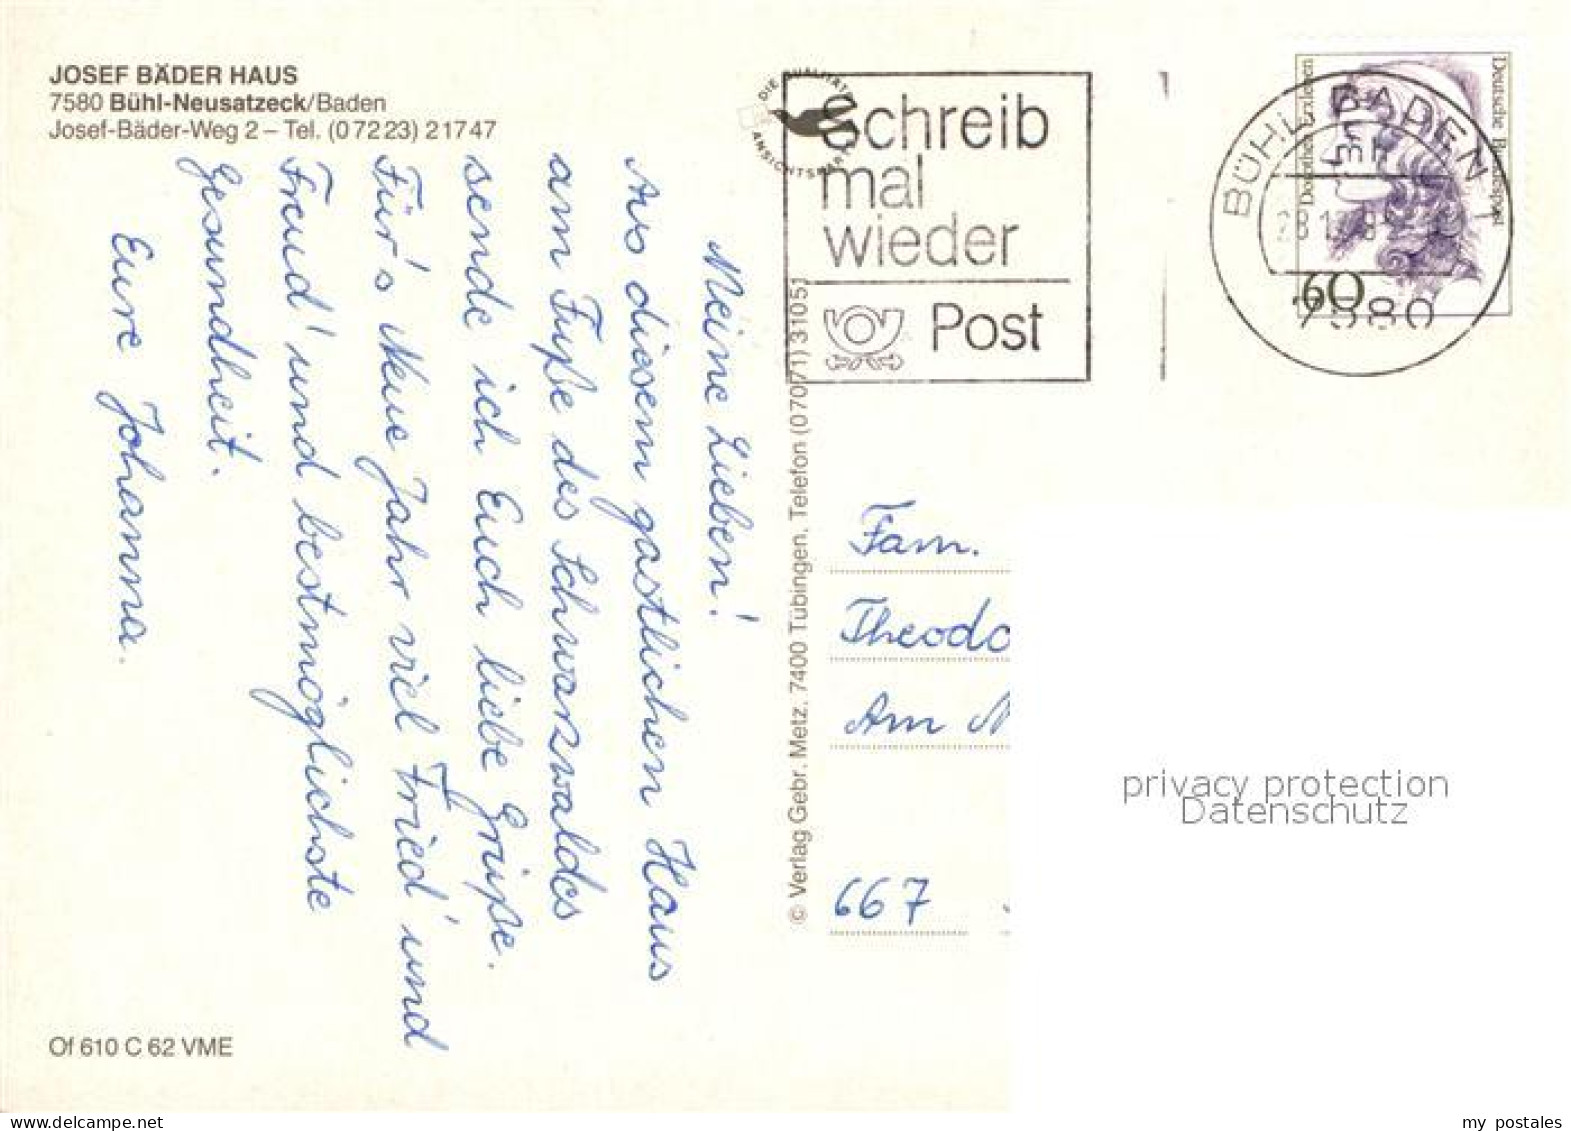 JOSEF BÄDER HAUS
7580 Bühl-Neusatzeck/Baden
Josef-Bäder-Weg 2 – Tel. (0 72 23) 2 17 47
Meine Lieben!
Aus diesem gastlichen Haus
am Fuße des Schwarzwaldes
sende ich Euch liebe Grüße.
Für's Neue Jahr viel Fried' und
Freud' und bestmöglichste
Gesundheit.
Eure Johanna.
Of 610 C 62 VME
© Verlag Gebr. Metz, 7400 Tübingen, Telefon (07071) 31051
DIE QUALITÄTS
ANSICHTSKARTE
Schreib
mal
wieder
Post
BÜHL, BADEN 1
mh
7580
Deutsche Bundespost
Dorothea Erxleben
60
Fam.
Theodo
Am
667
privacy protection
Datenschutz
my postales